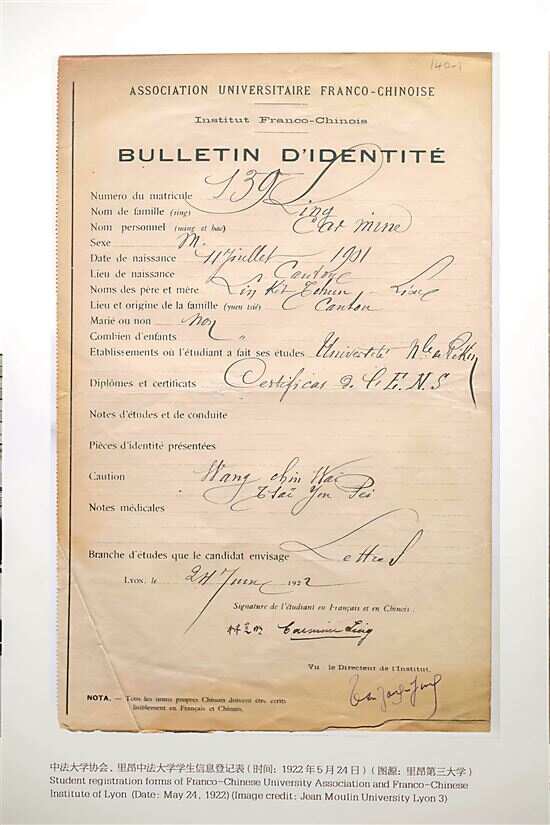 140-1
ASSOCIATION UNIVERSITAIRE FRANCO-CHINOISE
Institut Franco-Chinois
BULLETIN D'IDENTITÉ
Numero du matricule 139
Nom de famille (sing) Ling
Nom personnel (mang et hao) Car mine
Sexe M.
Date de naissance 11 Juillet 1901
Lieu de naissance Canton
Noms des père et mère Lin Kit Tchun -
Lieu et origine de la famille (yuen tsié) Canton
Marié ou non non
Combien d'enfants "
Etablissements où l'étudiant a fait ses études Université Nle de Pékin
Diplômes et certificats Certificat de l'E.N.S
Notes d'études et de conduite
Pièces d'identité présentées
Caution Wang chin Wai
Tsaï Yon Pei
Notes médicales
Branche d'études que le candidat envisage Lettres
Lyon, le 24 1922
Signature de l'étudiant en Français et en Chinois.
Ling
Vu le Directeur de l'Institut,
NOTA. — Tous les noms propres Chinois doivent être écrits
lisiblement en Français et Chinois.
中法大学协会、里昂中法大学学生信息登记表(时间:1922年5月24日)(图源:里昂第三大学)
Student registration forms of Franco-Chinese University Association and Franco-Chinese
Institute of Lyon (Date: May 24, 1922)(Image credit: Jean Moulin University Lyon 3)